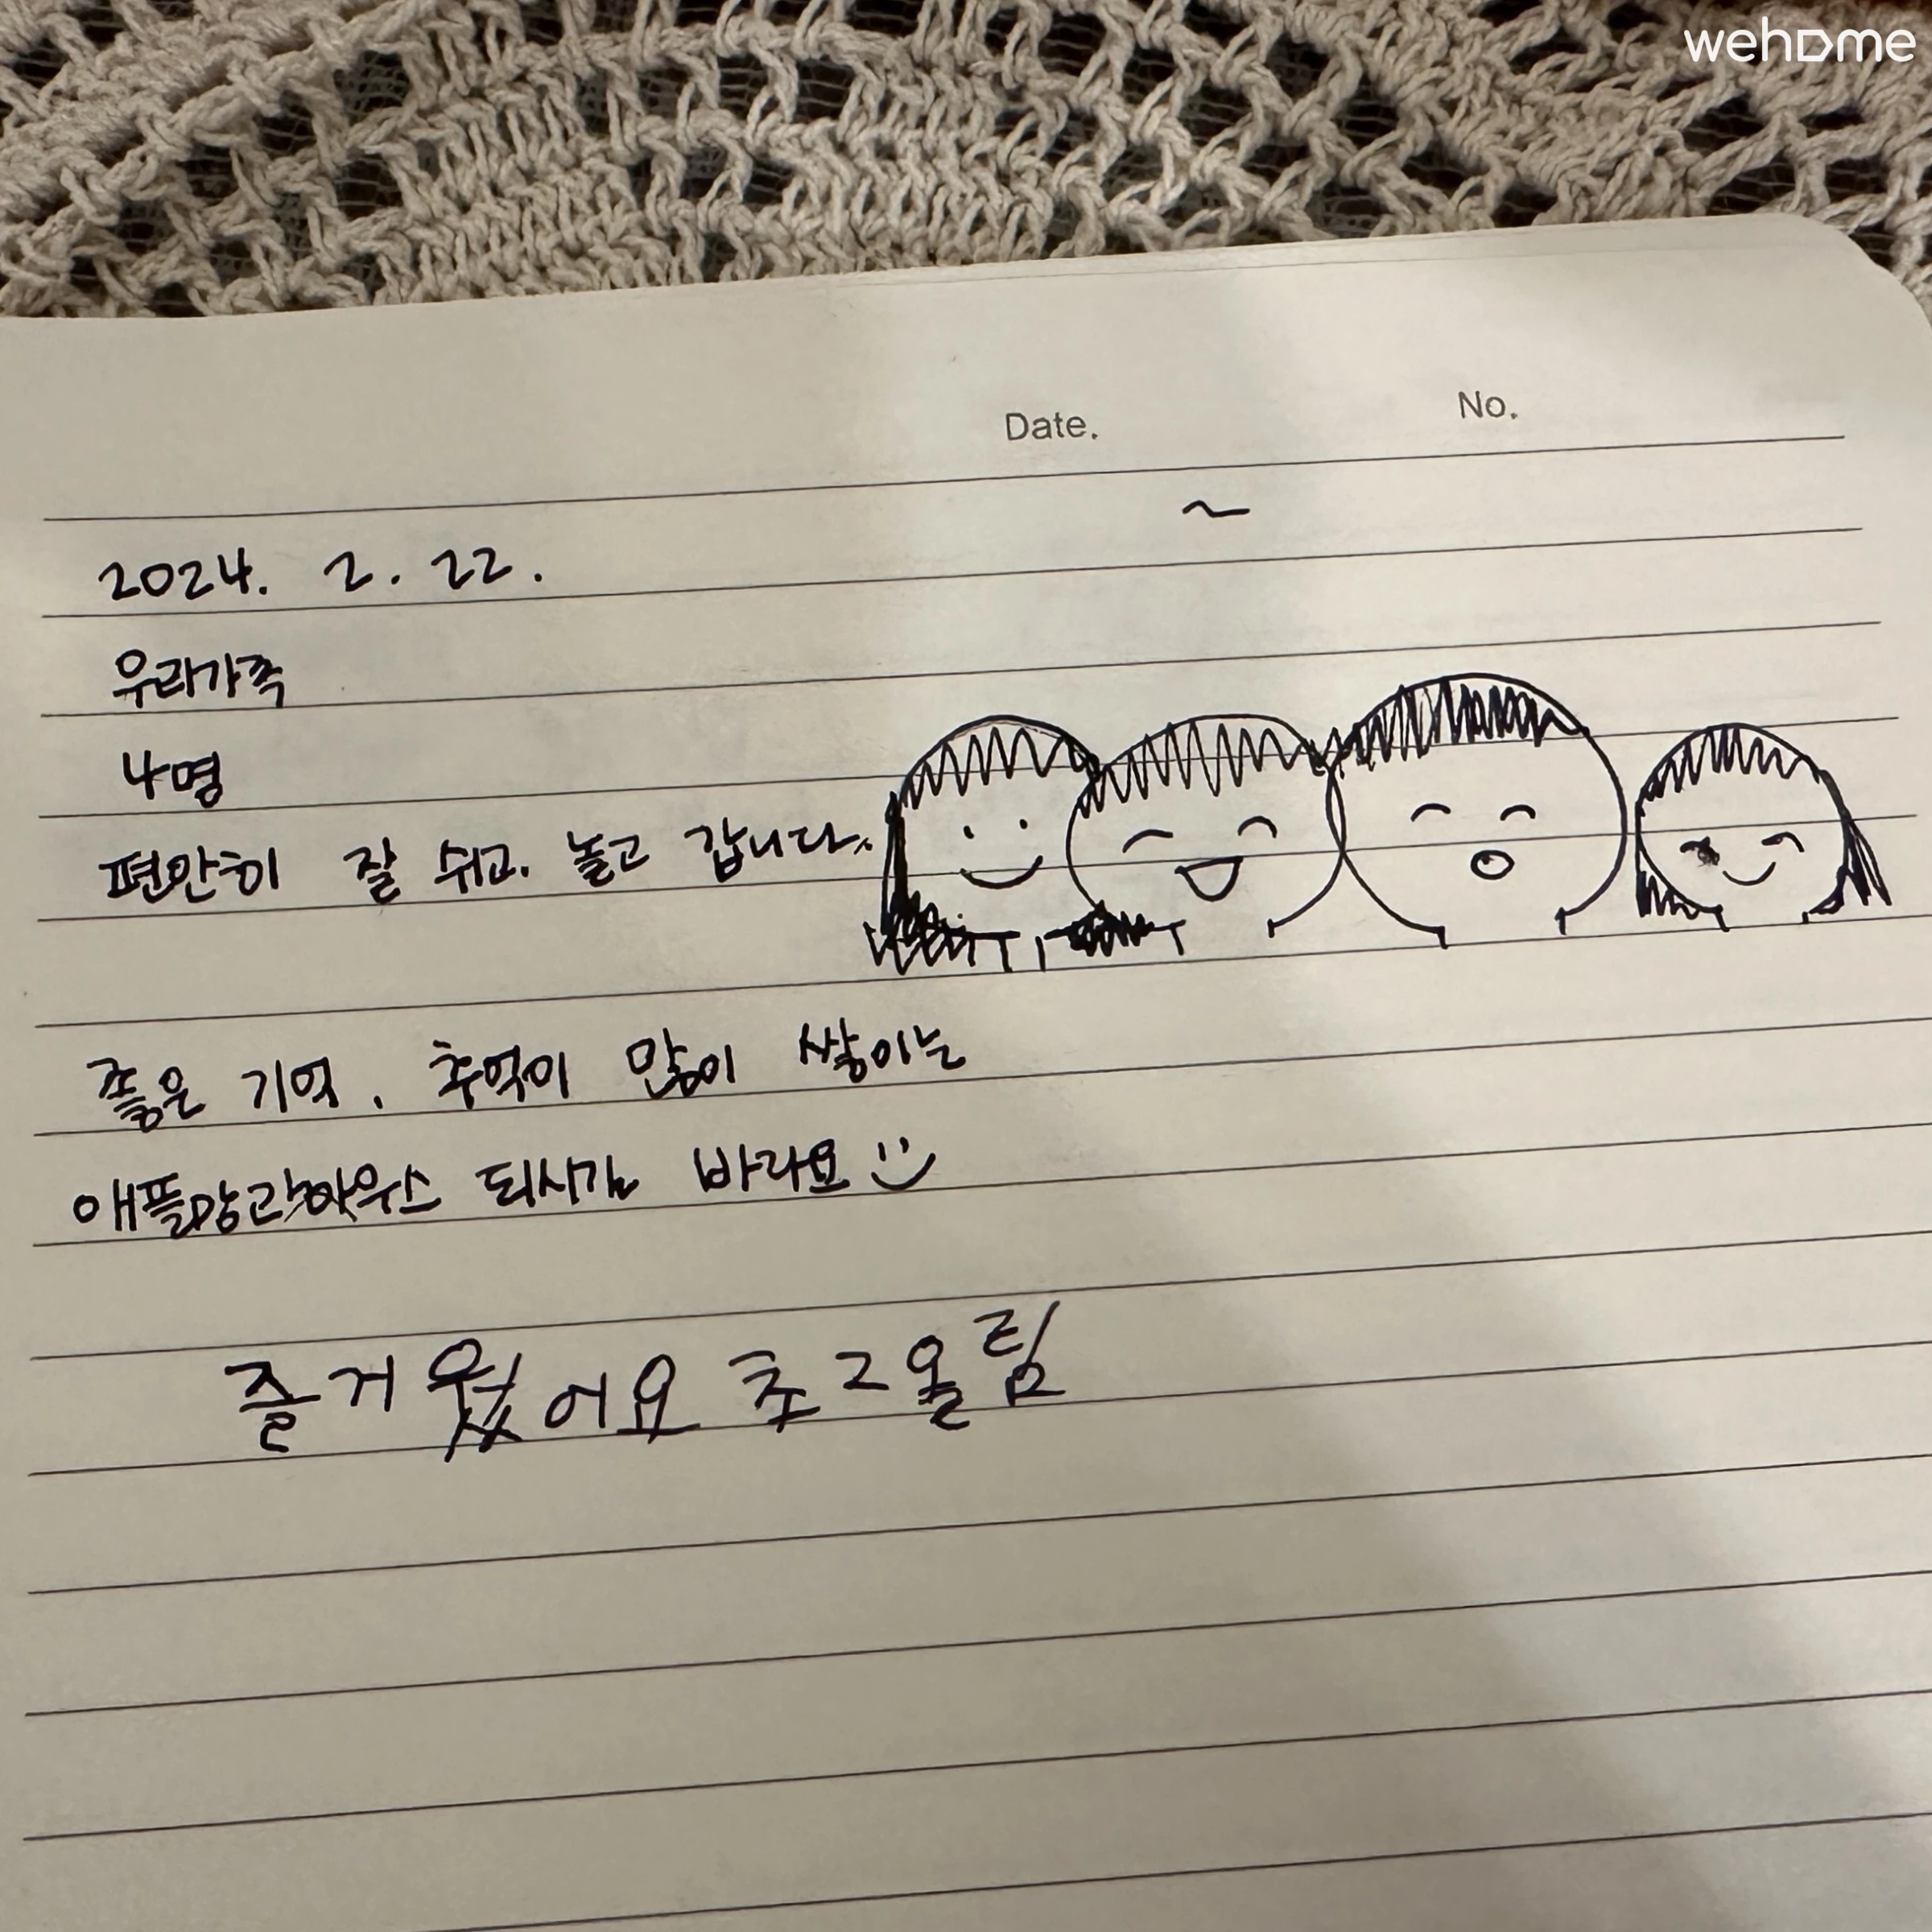 wehome
Date.
No.
~
2024. 2. 22.
우리가족
4명
편안히 잘 쉬고. 놀고 갑니다.
좋은 기억, 추억이 많이 쌓이는
애플망고하우스 되시길 바라요
즐거웠어요 초그올림